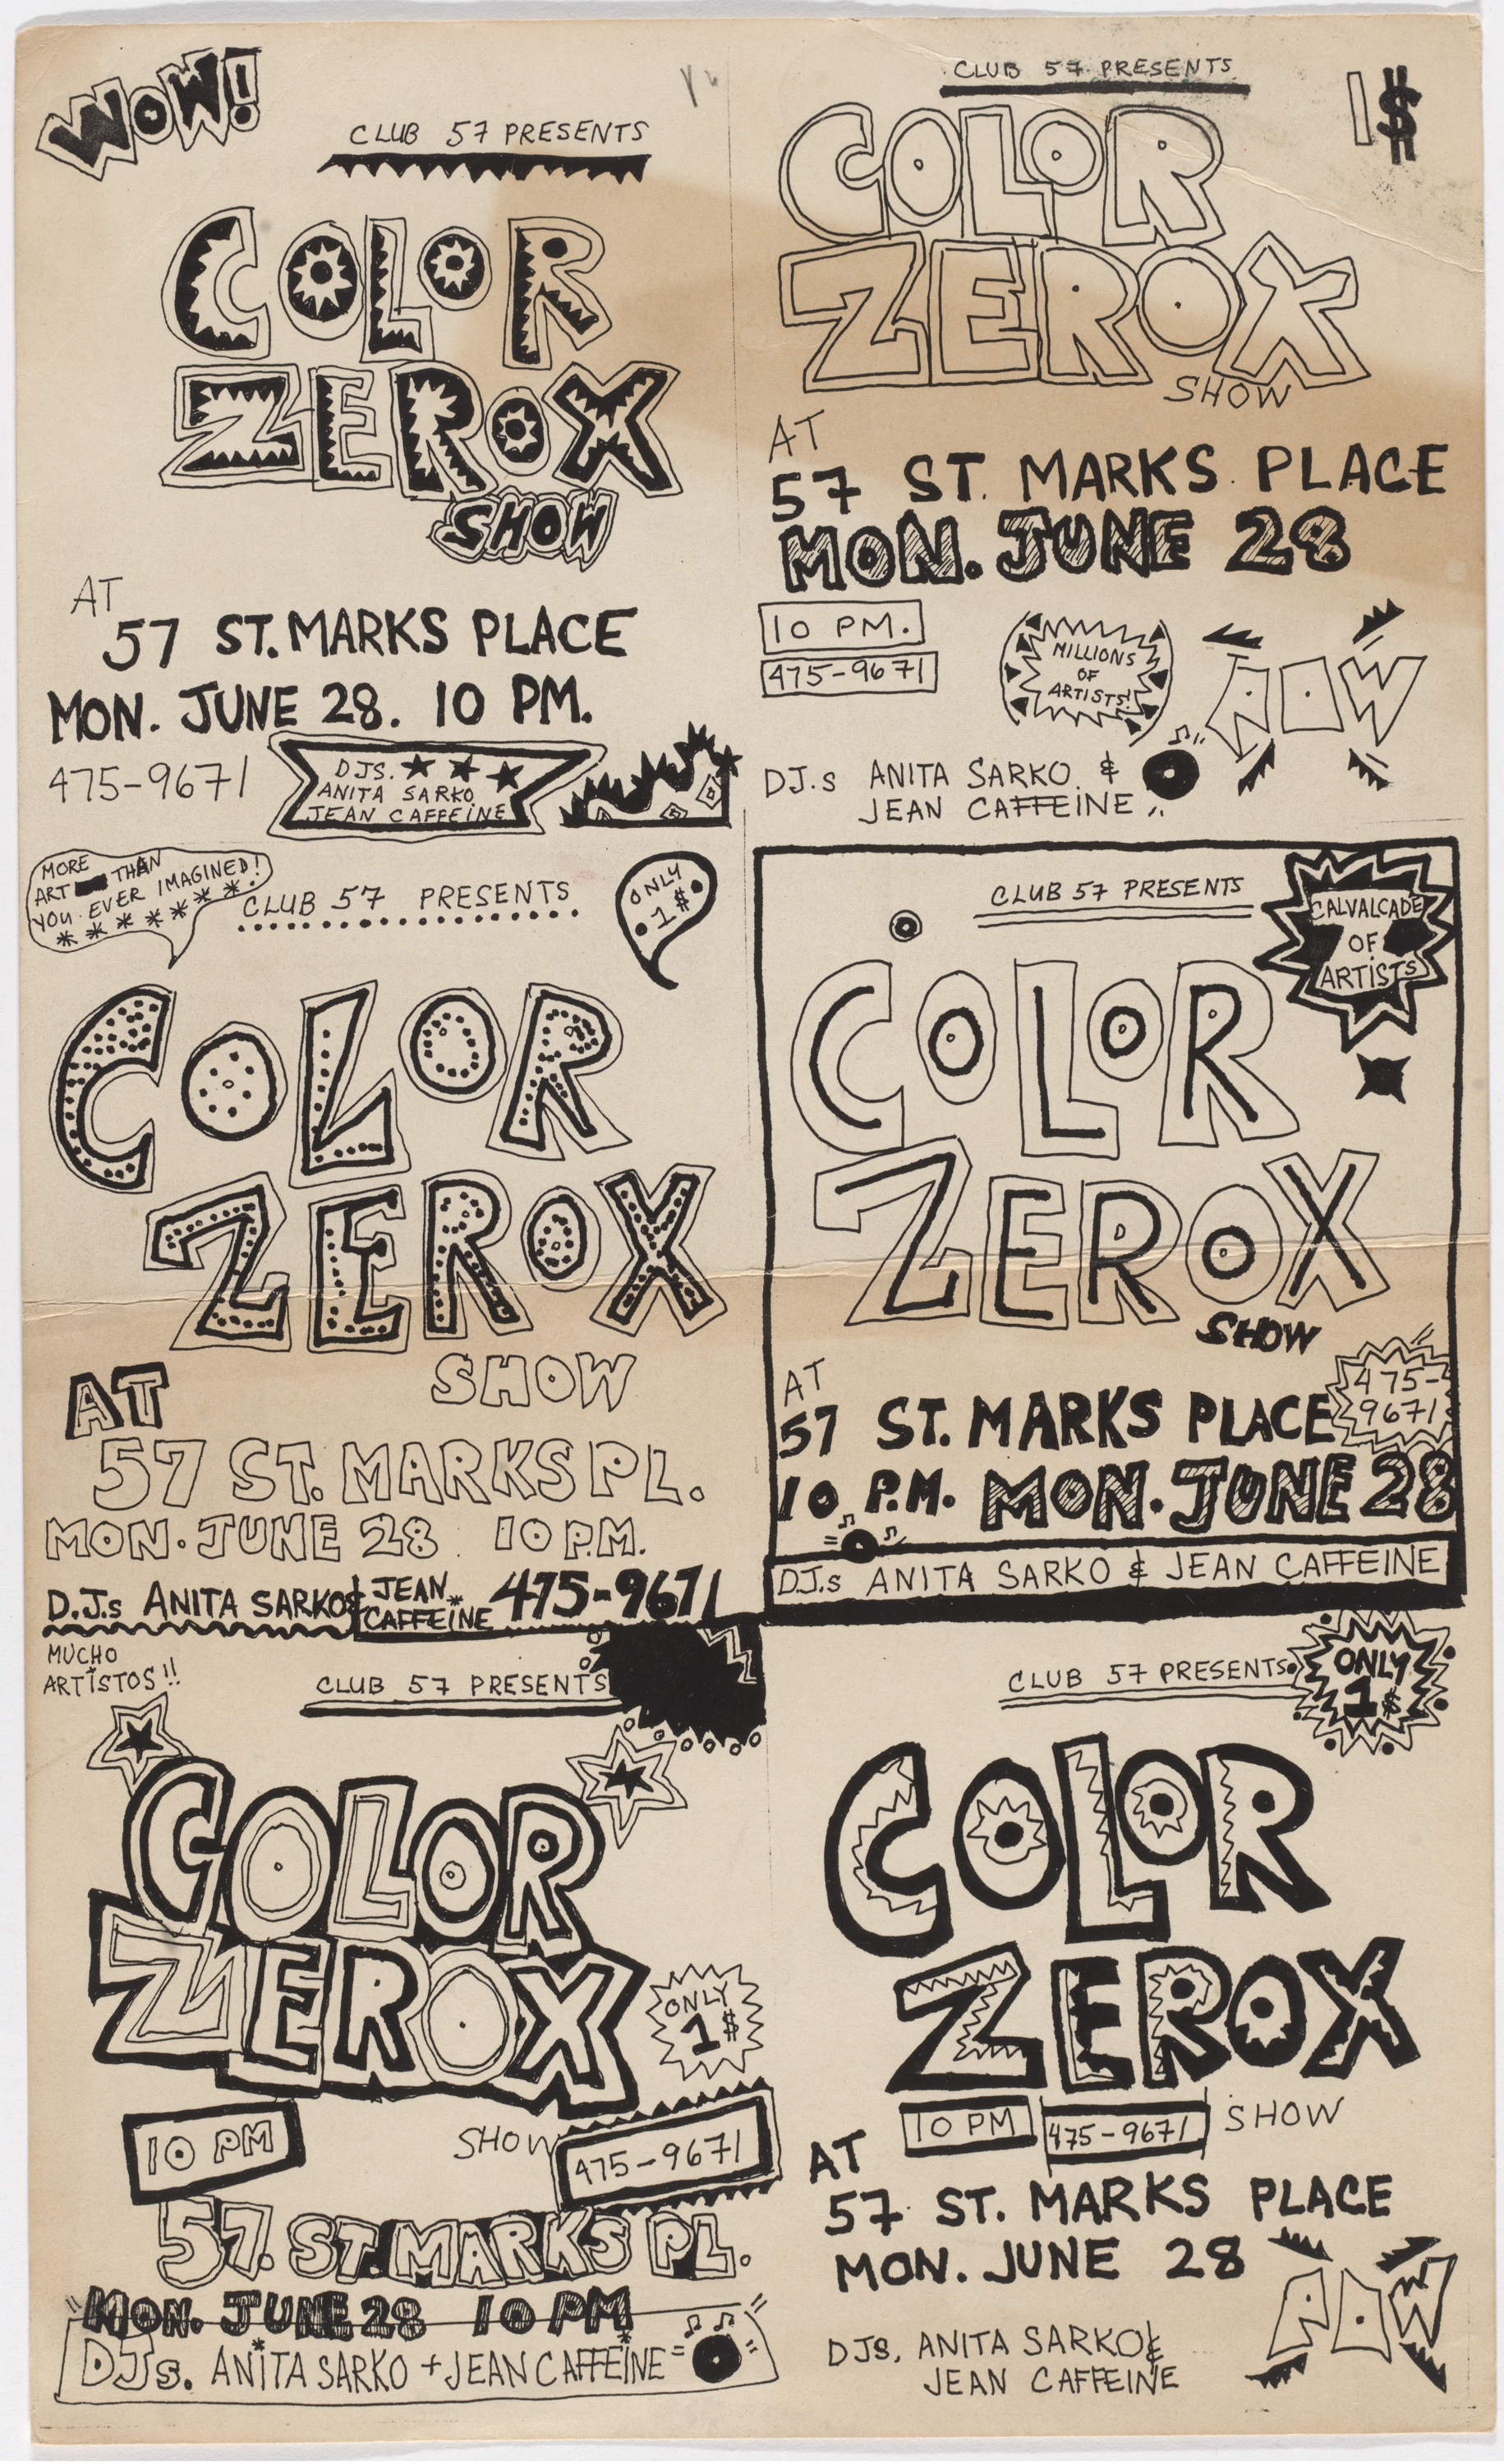 WOW!
CLUB 57 PRESENTS
COLOR
ZEROX
SHOW
AT
57 ST. MARKS PLACE
MON. JUNE 28. 10 PM.
475-9671
DJS.
ANITA SARKO
JEAN CAFFEINE
CLUB 57 PRESENTS
1$
COLOR
ZEROX
SHOW
AT
57 ST. MARKS PLACE
MON. JUNE 28
10 PM.
475-9671
MILLIONS
OF
ARTISTS!
POW
DJ.s ANITA SARKO &
JEAN CAFFEINE
MORE THAN
ART
YOU EVER IMAGINED!
CLUB 57 PRESENTS
ONLY
1$
COLOR
ZEROX
SHOW
AT
57 ST. MARKS PL.
MON. JUNE 28 10 P.M.
D.J.s ANITA SARKO & JEAN CAFFEINE 475-9671
CLUB 57 PRESENTS
CALVALCADE
OF
ARTISTS
COLOR
ZEROX
SHOW
AT
57 ST. MARKS PLACE
475-
9671
10 P.M. MON. JUNE 28
DJ.s ANITA SARKO & JEAN CAFFEINE
MUCHO
ARTISTOS!!
CLUB 57 PRESENTS
COLOR
ZEROX
ONLY
1$
10 PM
SHOW
475-9671
57. ST. MARKS PL.
MON. JUNE 28 10 PM
DJs. ANITA SARKO + JEAN CAFFEINE
CLUB 57 PRESENTS
ONLY
1$
COLOR
ZEROX
10 PM
475-9671
SHOW
AT
57 ST. MARKS PLACE
MON. JUNE 28
POW
DJS. ANITA SARKO &
JEAN CAFFEINE